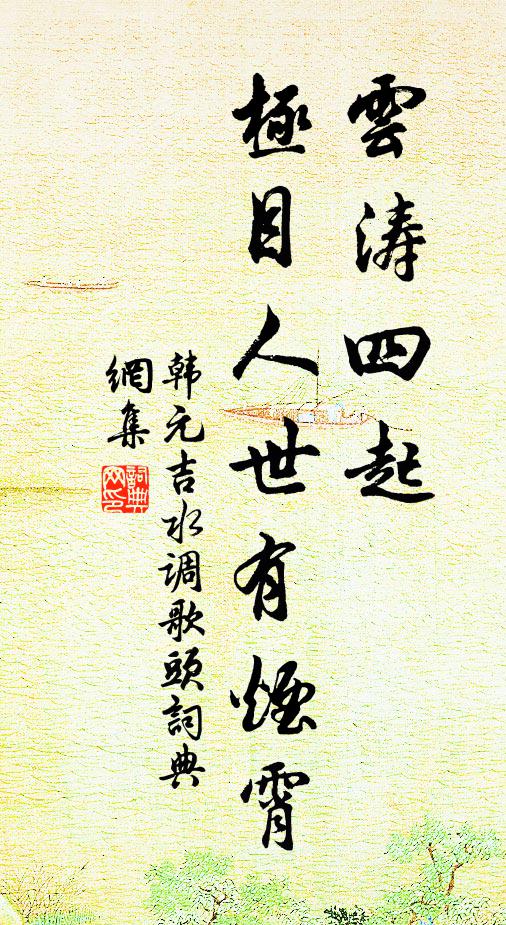 雲濤四起
極目人世有煙霄
韩元吉水调歌頭詞典
網集
詞典
网印